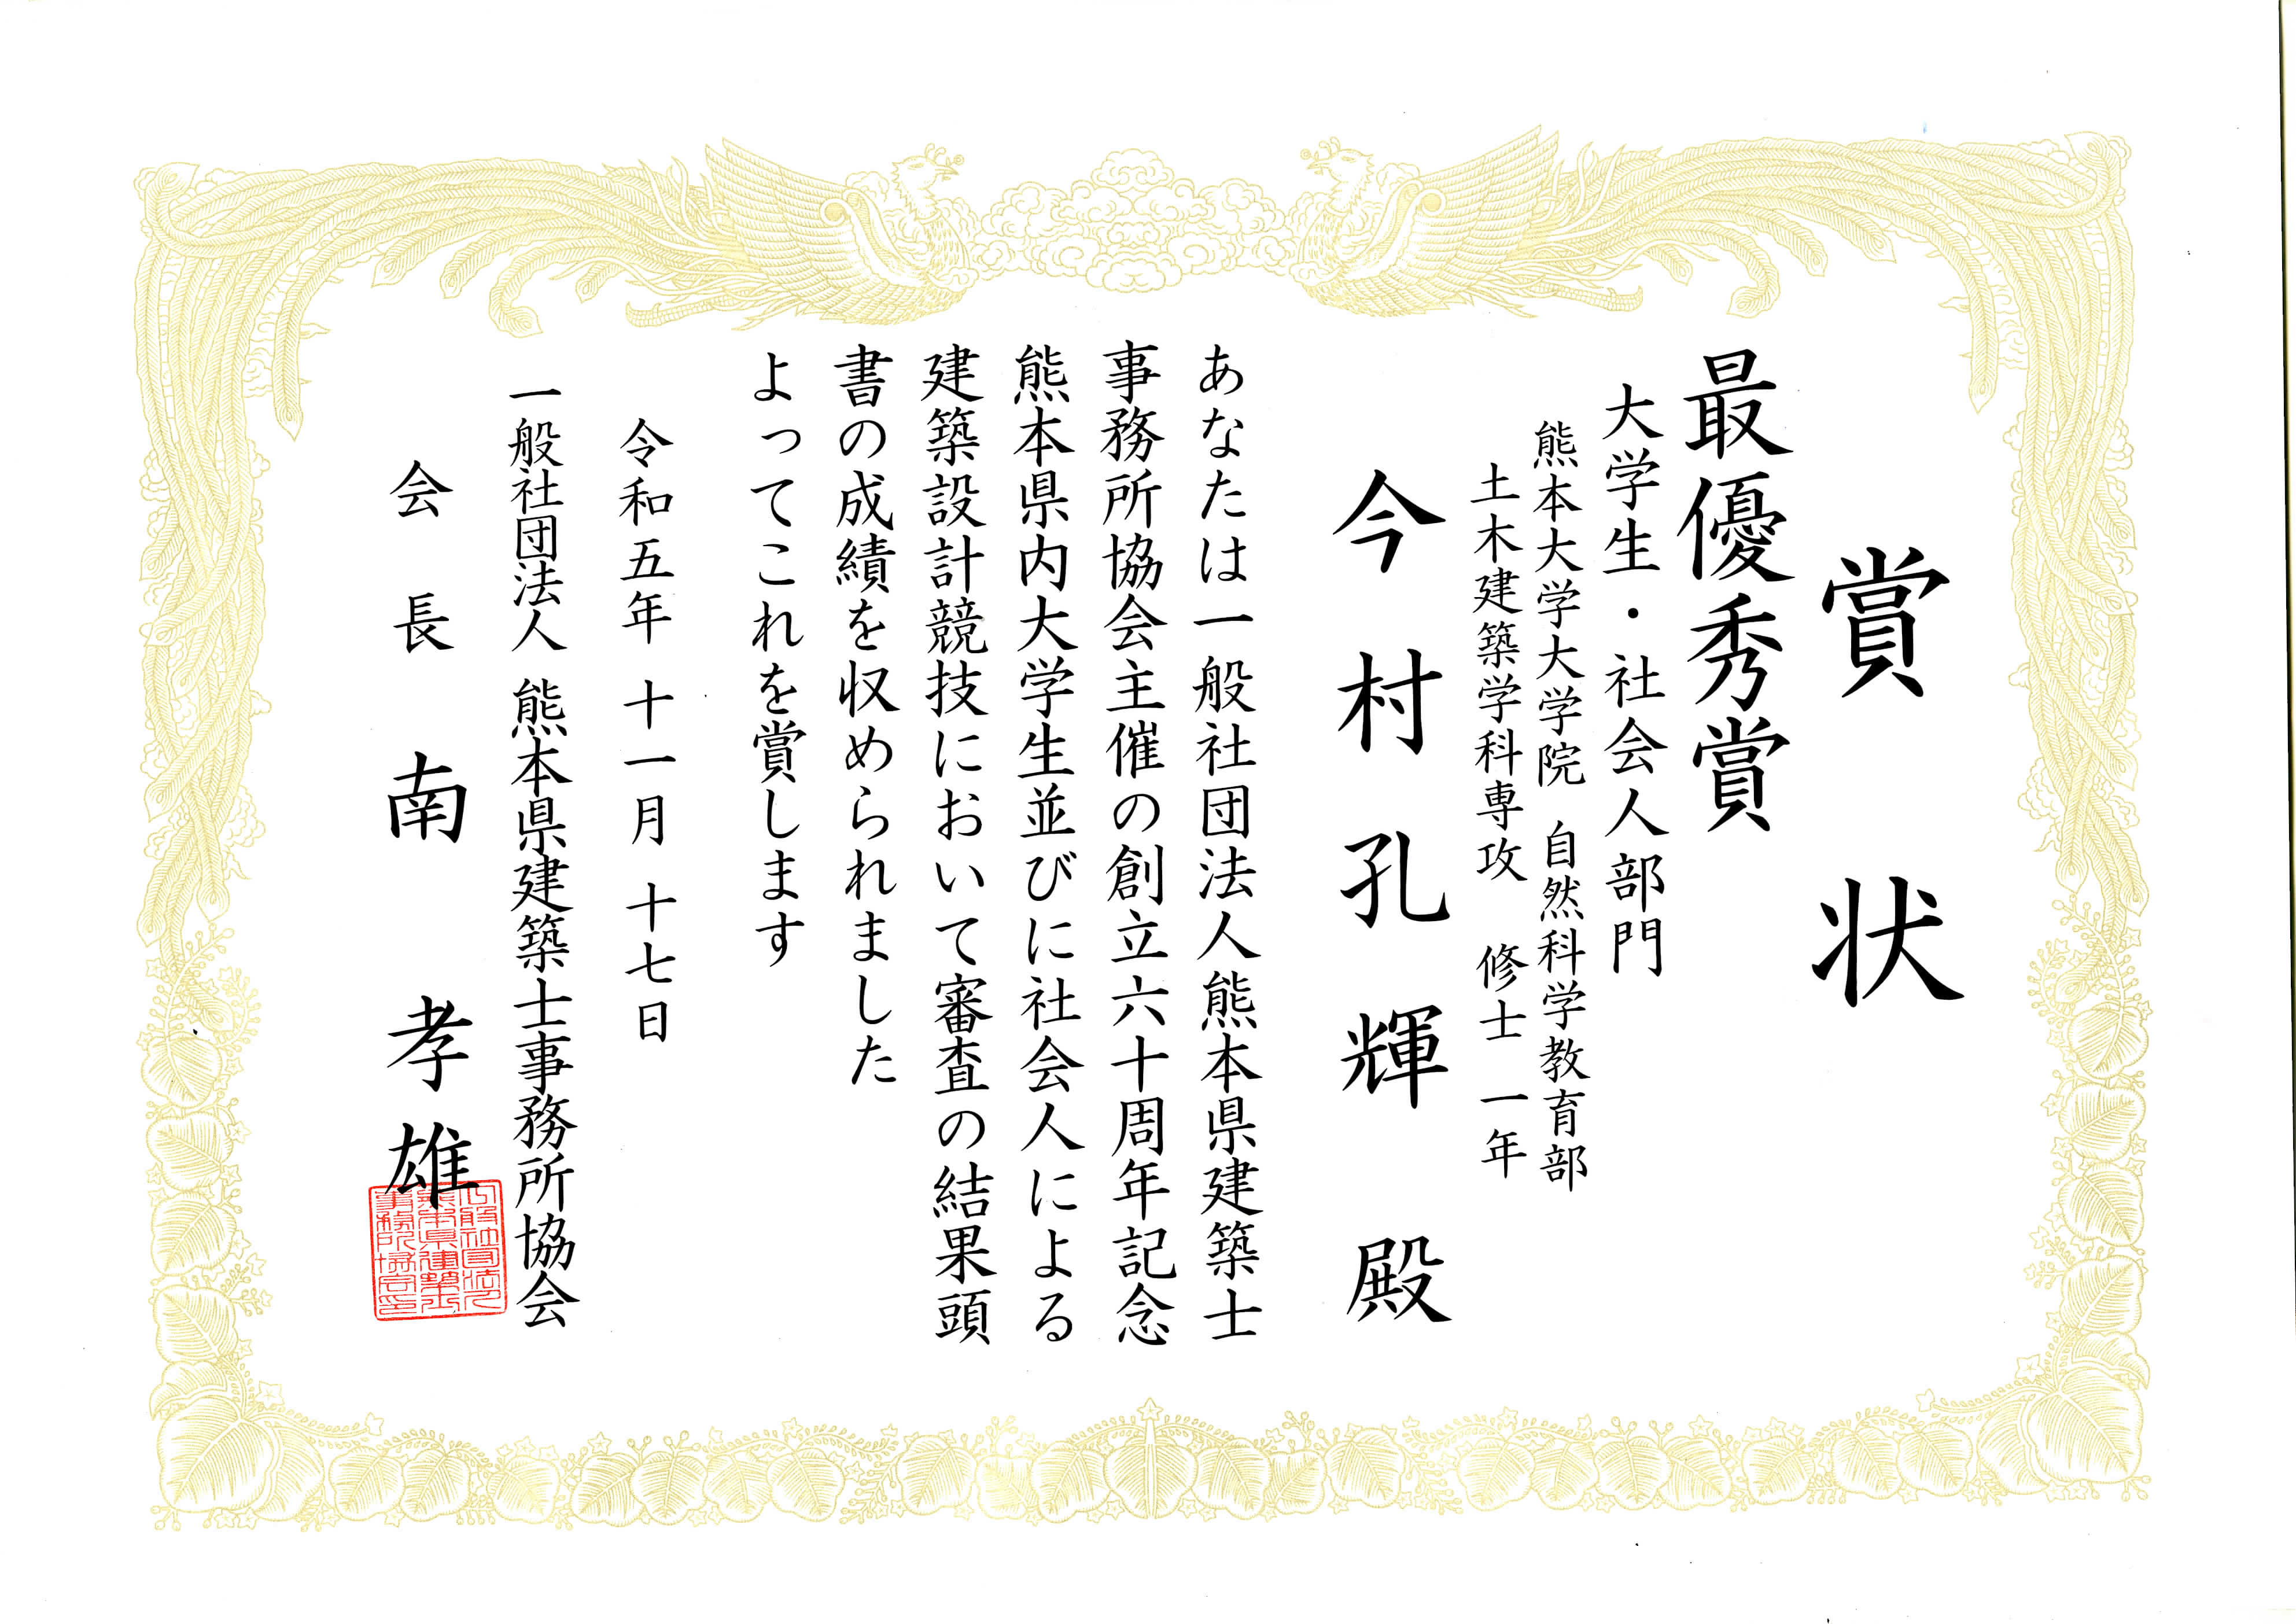 賞状
最優秀賞
大学生・社会人部門
熊本大学大学院 自然科学教育部
土木建築学科専攻 修士 一年
今村孔輝 殿
あなたは一般社団法人熊本県建築士
事務所協会主催の創立六十周年記念
熊本県内大学生並びに社会人による
建築設計競技において審査の結果頭
書の成績を収められました
よってこれを賞します
令和五年 十一月 十七日
一般社団法人 熊本県建築士事務所協会
会長 南 孝雄